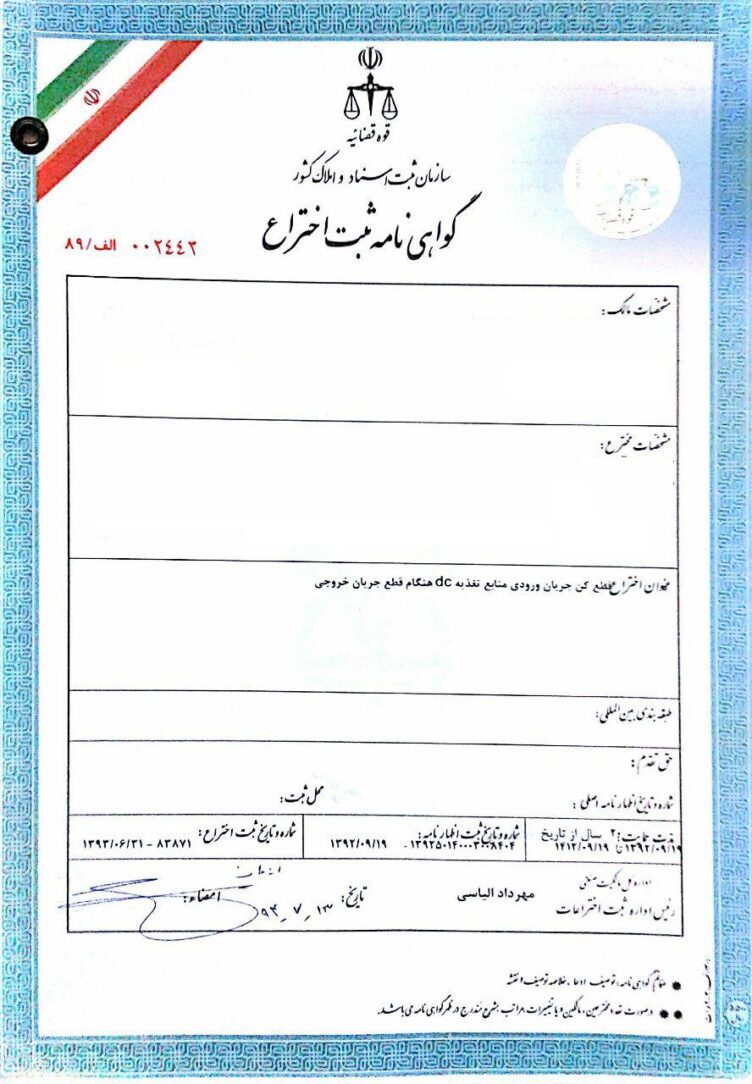 قوه قضائیه
سازمان ثبت اسناد و املاک کشور
گواهی نامه ثبت اختراع
۰۰۲۴۴۳ الف/۸۹
مشخصات مالک:
مشخصات مخترع:
عنوان اختراع: قطع کن جریان ورودی منابع تغذیه dc هنگام قطع جریان خروجی
طبقه بندی بین المللی:
حق تقدم:
شماره و تاریخ اظهارنامه اصلی: محل ثبت:
مدت حمایت: ۲۰ سال از تاریخ ۱۳۹۲/۰۹/۱۹ تا ۱۴۱۲/۰۹/۱۹
شماره و تاریخ ثبت اظهارنامه: ۱۳۹۲۵۰۱۴۰۰۰۳۰۰۸۴۰۴ - ۱۳۹۲/۰۹/۱۹
شماره و تاریخ ثبت اختراع: ۸۳۸۷۱ - ۱۳۹۳/۰۶/۳۱
اداره کل مالکیت صنعتی
رئیس اداره ثبت اختراعات مهرداد الیاسی تاریخ: ۹۳_۷_۱۳ امضاء:
ضمائم گواهی نامه: توصیف، ادعا، خلاصه توصیف و نقشه
درصورت تعدد مخترعین، مالکین و یا تغییرات مراتب بشرح مندرج در ظهر گواهی نامه می باشد.